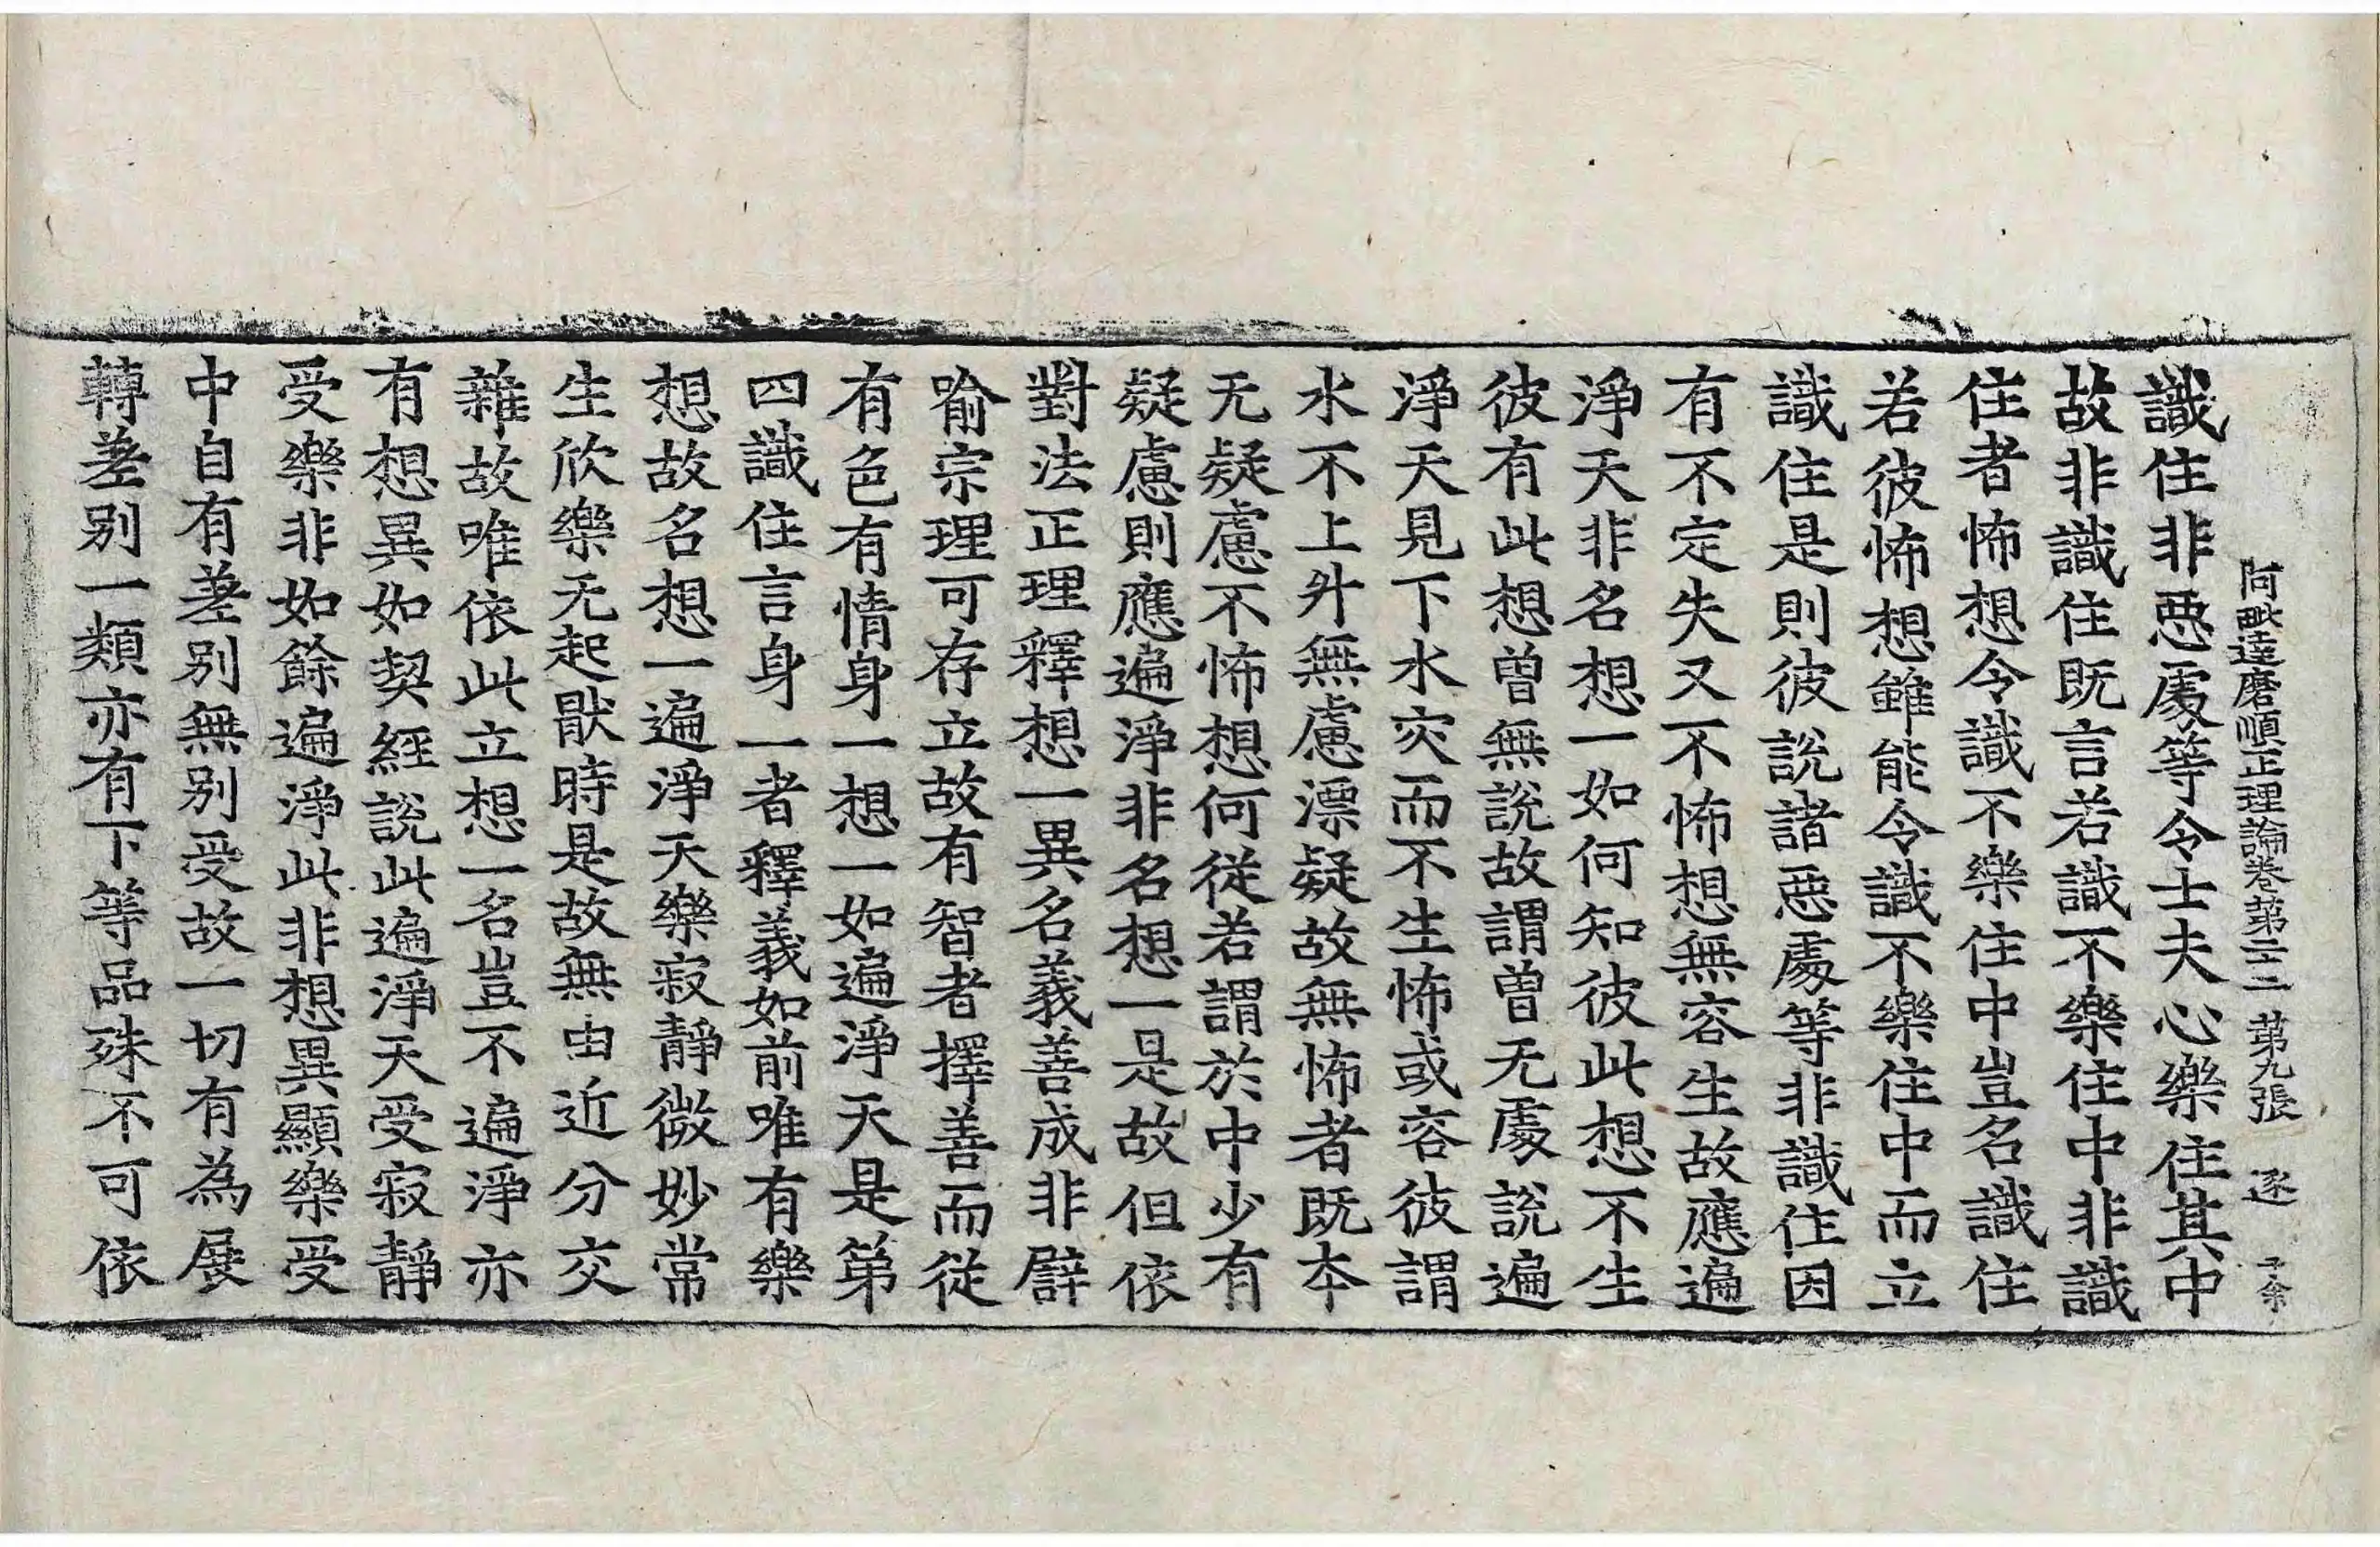 阿毗達磨順正理論卷第二十二 第九張 逐
識住非惡處等令士夫心樂住其中
故非識住既言若識不樂住中非識
住者怖想令識不樂住中豈名識住
若彼怖想雖能令識不樂住中而立
識住是則彼說諸惡處等非識住因
有不定失又不怖想無容生故應遍
淨天非名想一如何知彼此想不生
彼有此想曾無說故謂曾无處說遍
淨天見下水灾而不生怖或容彼謂
水不上升無慮漂疑故無怖者既夲
无疑慮不怖想何從若謂於中少有
疑慮則應遍淨非名想一是故但依
對法正理釋想一異名義善成非譬
喻宗理可存立故有智者擇善而從
有色有情身一想一如遍淨天是第
四識住言身一者釋義如前唯有樂
想故名想一遍淨天樂寂靜微妙常
生欣樂无起猒時是故無由近分交
雜故唯依此立想一名豈不遍淨亦
有想異如契經說此遍淨天受寂靜
受樂非如餘遍淨此非想異顯樂受
中自有差別無別受故一切有為展
轉差別一類亦有下等品殊不可依